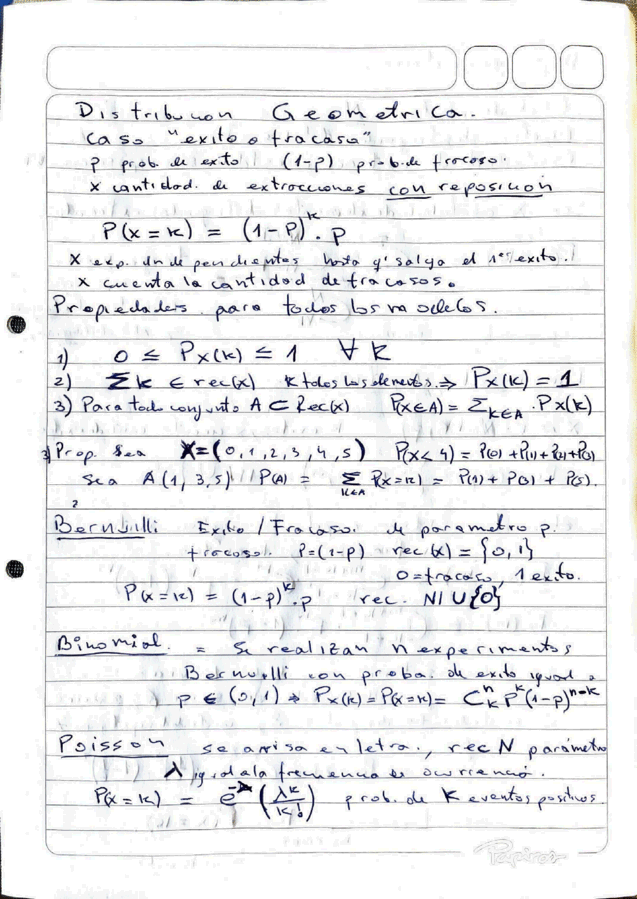 Distribucion Geometrica.
Caso "exito o fracaso"
p prob. de exito (1-p) prob. de fracaso.
x cantidad. de extracciones con reposicion
P(x=k) = (1-P)^k . p
x exp. independientes hasta q' salga el 1er exito.
x cuenta la cantidad de fracasos.
Propiedades para todos los modelos.
1) 0 ≤ Px(k) ≤ 1 ∀ k
2) Σk ∈ rec(x) k todos los elementos. ⇒ Px(k) = 1
3) Para todo conjunto A ⊂ Rec(x) P(x∈A) = Σ_{K∈A} . Px(k)
3) Prop. Sea X=(0,1,2,3,4,5) P(x<4) = P(0)+P(1)+P(2)+P(3)
Sea A(1,3,5) P(A) = Σ_{K∈A} P(x=k) = P(1) + P(3) + P(5).
?
Bernulli Exito / Fracaso. de parametro p.
fracaso. P=(1-p) rec(x) = {0,1}
0=fracaso, 1 exito.
P(x=k) = (1-p)^k . p rec. N U {0}
Binomial. = Se realizan n experimentos
Bernulli con proba. de exito igual a
p ∈ (0,1) ⇒ Px(k) = P(x=k) = C^n_k P^k (1-p)^{n-k}
Poisson se avisa en letra., rec N parámetro
λ igual a la frecuencia de ocurrencia.
P(x=k) = e^-λ (λk/k!) prob. de K eventos positivos.
Papiros